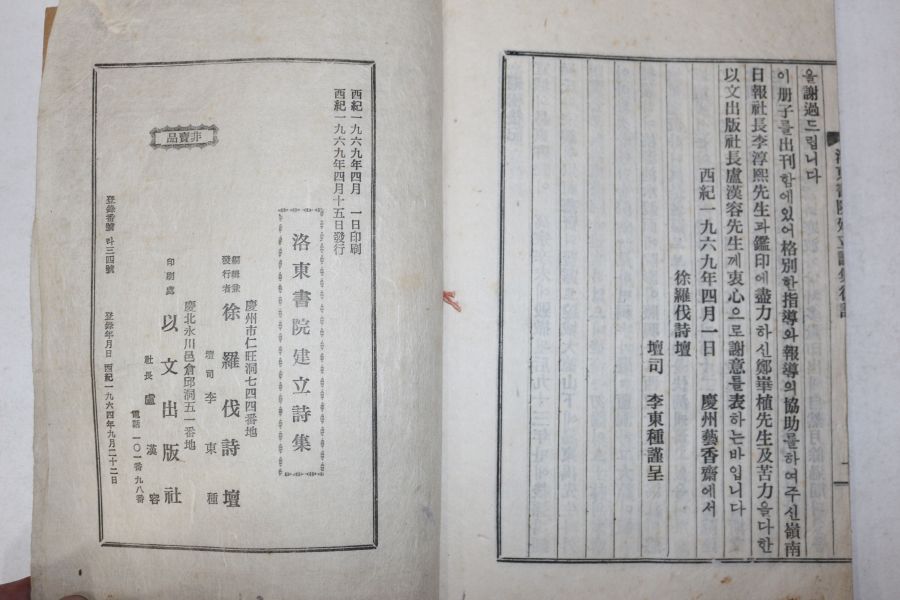 을謝過드립니다
이册子를出刊함에있어格別한指導와報導의協助를하여주신嶺南
日報社長李淳熙先生과鑑印에盡力하신鄭畢植先生及苦力을다한
以文出版社長盧漢容先生께衷心으로謝意를表하는바입니다
西紀一九六九年四月一日 慶州藝香齋에서
徐羅伐詩壇
壇司 李東種謹呈
西紀一九六九年四月 一日印刷
西紀一九六九年四月十五日發行
洛東書院建立詩集
慶州市仁旺洞七四四番地
編輯兼
發行者 徐羅伐詩壇
壇司 李東種
慶北永川邑倉邱洞五一番地
印刷處 以文出版社
社長 盧漢容
電話 一〇一番 九八番
登錄番號 라三四號 登錄年月日 西紀一九六四年九月二十二日
非賣品